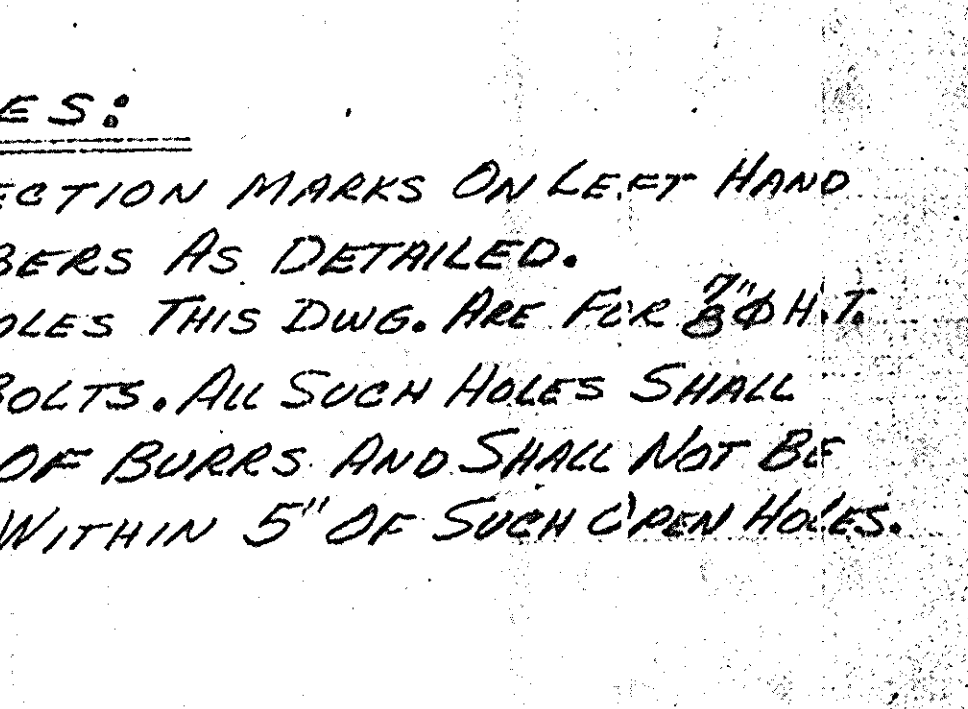 ES:
ECTION MARKS ON LEFT HAND
BERS AS DETAILED.
OLES THIS DWG. ARE FOR 7/8"Ø H.T.
BOLTS. ALL SUCH HOLES SHALL
OF BURRS AND SHALL NOT BE
WITHIN 5" OF SUCH OPEN HOLES.